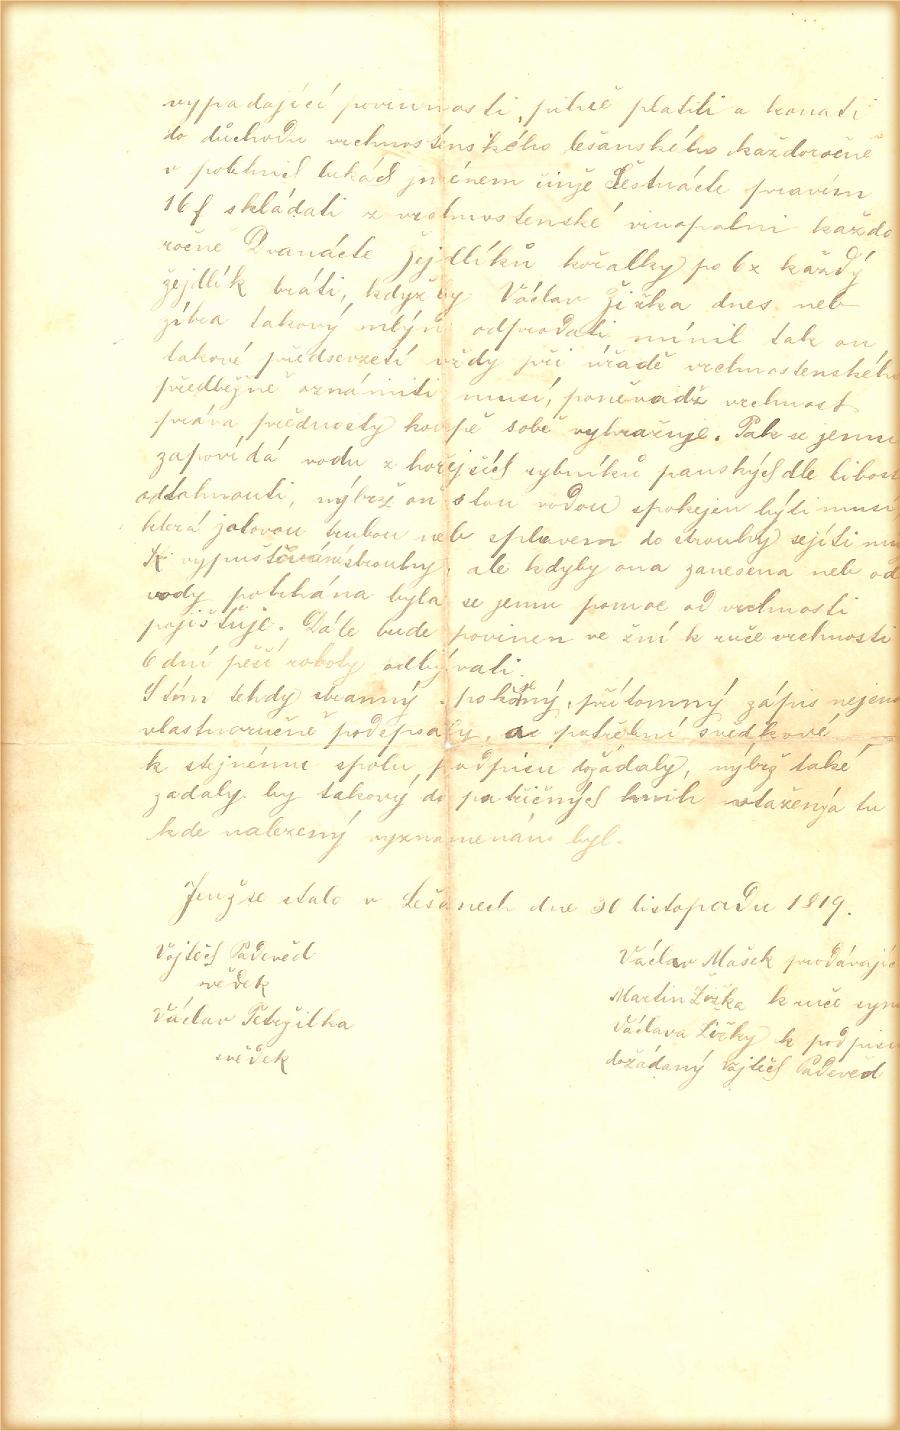 vypadající povinnosti, pilně platiti a konati
do důchodu vrchnostenského lešanského každoročně
v polhnich lukách jménem činže Šestnácte pravím
16 f skládati z vrchnostenské vinopalni každo
ročně Dvanácte žejdlíků kořalky po 6 x každý
žejdlík bráti, kdyžby Václav Žižka dnes neb
zítra takový mlýn odprodati mínil tak on
takové předsevzetí vždy při úřadě vrchnostenského
předběžně oznámiti musí, poněvadž vrchnost
práva přednosty koupě sobě vyhražuje. Pak se jemu
zapovídá vodu z hořejších rybníků panských dle libost
odtahnouti, nýbrž on s tou vodou spokojen býti musí,
která jalovou trubou neb splavem do strouhy sejíti mu
K vypuštěvání strouhy, ale kdyby ona zanesena neb od
vody potrhána byla se jemu pomoc od vrchnosti
pojišťuje. Dále bude povinen ve žni k ruce vrchnosti
6 dní pěší roboty odbývati.
S tím tehdy stranný pokojný přítomný zápis nejeno
vlastnoručně podepsaly, a potřební svědkové
k stejnému spolu podpisu dožádaly, nýbrž také
žádaly by takový do patřičných knih vtažený a tu
kde nalezený vyznamenán byl.
Jenž se stalo v Lešanech dne 30 listopadu 1819.
Vojtěch Paděvěd
svědek
Václav Petržilka
svědek
Václav Mašek prodávajíc
Martin Žižka k ruce syn
Václava Žižky k podpisu
dožádaný Vojtěch Paděvěd